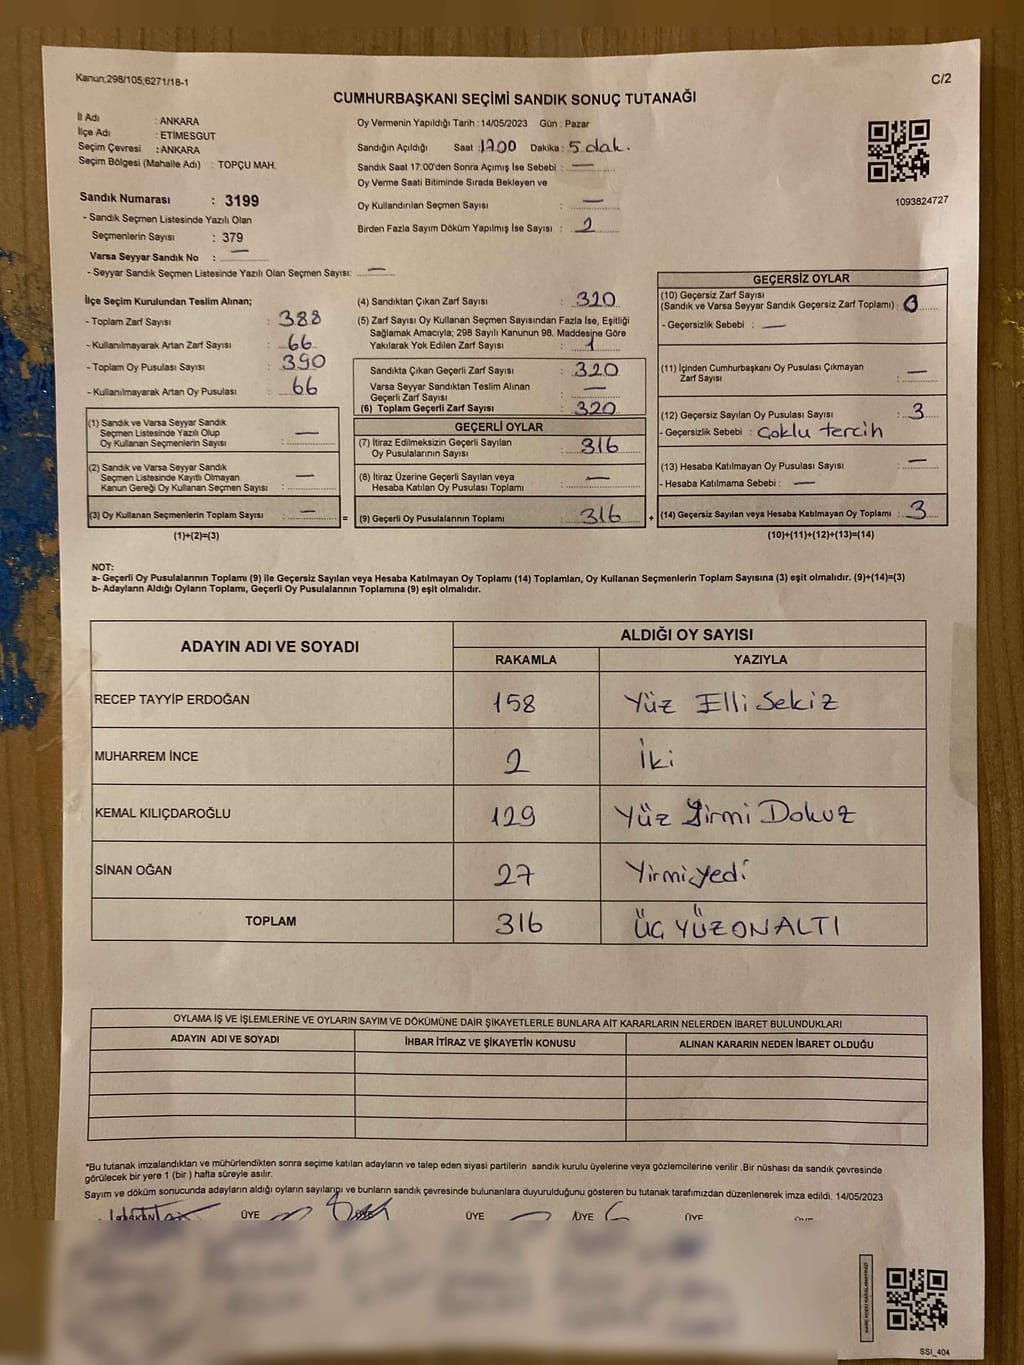 Kanun;298/105,6271/18-1
C/2
CUMHURBAŞKANI SEÇİMİ SANDIK SONUÇ TUTANAĞI
İl Adı : ANKARA
İlçe Adı : ETİMESGUT
Seçim Çevresi : ANKARA
Seçim Bölgesi (Mahalle Adı) : TOPÇU MAH.
Oy Vermenin Yapıldığı Tarih : 14/05/2023 Gün : Pazar
Sandığın Açıldığı Saat : 17.00 Dakika : 5 dak.
Sandık Saat 17:00'den Sonra Açımış İse Sebebi : —
Oy Verme Saati Bitiminde Sırada Bekleyen ve
Oy Kullandırılan Seçmen Sayısı : —
Birden Fazla Sayım Döküm Yapılmış İse Sayısı : 2
1093824727
Sandık Numarası : 3199
- Sandık Seçmen Listesinde Yazılı Olan
Seçmenlerin Sayısı : 379
Varsa Seyyar Sandık No : —
- Seyyar Sandık Seçmen Listesinde Yazılı Olan Seçmen Sayısı: —
İlçe Seçim Kurulundan Teslim Alınan;
- Toplam Zarf Sayısı : 388
- Kullanılmayarak Artan Zarf Sayısı : 66
- Toplam Oy Pusulası Sayısı : 390
- Kullanılmayarak Artan Oy Pusulası : 66
(1) Sandık ve Varsa Seyyar Sandık
Seçmen Listesinde Yazılı Olup
Oy Kullanan Seçmenlerin Sayısı : —
(2) Sandık ve Varsa Seyyar Sandık
Seçmen Listesinde Kayıtlı Olmayan
Kanun Gereği Oy Kullanan Seçmen Sayısı : —
(3) Oy Kullanan Seçmenlerin Toplam Sayısı : — =
(1)+(2)=(3)
(4) Sandıktan Çıkan Zarf Sayısı : 320
(5) Zarf Sayısı Oy Kullanan Seçmen Sayısından Fazla İse, Eşitliği
Sağlamak Amacıyla; 298 Sayılı Kanunun 98. Maddesine Göre
Yakılarak Yok Edilen Zarf Sayısı : 1
Sandıkta Çıkan Geçerli Zarf Sayısı : 320
Varsa Seyyar Sandıktan Teslim Alınan
Geçerli Zarf Sayısı : —
(6) Toplam Geçerli Zarf Sayısı : 320
GEÇERLİ OYLAR
(7) İtiraz Edilmeksizin Geçerli Sayılan
Oy Pusulalarının Sayısı : 316
(8) İtiraz Üzerine Geçerli Sayılan veya
Hesaba Katılan Oy Pusulası Toplamı : —
(9) Geçerli Oy Pusulalarının Toplamı : 316 +
GEÇERSİZ OYLAR
(10) Geçersiz Zarf Sayısı
(Sandık ve Varsa Seyyar Sandık Geçersiz Zarf Toplamı) : 0
- Geçersizlik Sebebi : —
(11) İçinden Cumhurbaşkanı Oy Pusulası Çıkmayan
Zarf Sayısı : —
(12) Geçersiz Sayılan Oy Pusulası Sayısı : 3
- Geçersizlik Sebebi : Çoklu tercih
(13) Hesaba Katılmayan Oy Pusulası Sayısı : —
- Hesaba Katılmama Sebebi : —
(14) Geçersiz Sayılan veya Hesaba Katılmayan Oy Toplamı : 3
(10)+(11)+(12)+(13)=(14)
NOT:
a- Geçerli Oy Pusulalarının Toplamı (9) ile Geçersiz Sayılan veya Hesaba Katılmayan Oy Toplamı (14) Toplamları, Oy Kullanan Seçmenlerin Toplam Sayısına (3) eşit olmalıdır. (9)+(14)=(3)
b- Adayların Aldığı Oyların Toplamı, Geçerli Oy Pusulalarının Toplamına (9) eşit olmalıdır.
ADAYIN ADI VE SOYADI
ALDIĞI OY SAYISI
RAKAMLA YAZIYLA
RECEP TAYYİP ERDOĞAN 158 Yüz Elli Sekiz
MUHARREM İNCE 2 İki
KEMAL KILIÇDAROĞLU 129 Yüz Yirmi Dokuz
SİNAN OĞAN 27 Yirmi yedi
TOPLAM 316 ÜÇ YÜZ ON ALTI
OYLAMA İŞ VE İŞLEMLERİNE VE OYLARIN SAYIM VE DÖKÜMÜNE DAİR ŞİKAYETLERLE BUNLARA AİT KARARLARIN NELERDEN İBARET BULUNDUKLARI
ADAYIN ADI VE SOYADI İHBAR İTİRAZ VE ŞİKAYETİN KONUSU ALINAN KARARIN NEDEN İBARET OLDUĞU
*Bu tutanak imzalandıktan ve mühürlendikten sonra seçime katılan adayların ve talep eden siyasi partilerin sandık kurulu üyelerine veya gözlemcilerine verilir .Bir nüshası da sandık çevresinde
görülecek bir yere 1 (bir ) hafta süreyle asılır.
Sayım ve döküm sonucunda adayların aldığı oyların sayılarını ve bunların sandık çevresinde bulunanlara duyurulduğunu gösteren bu tutanak tarafımızdan düzenlenerek imza edildi. 14/05/2023
BAŞKAN ÜYE ÜYE ÜYE ÜYE ÜYE
SSI_404